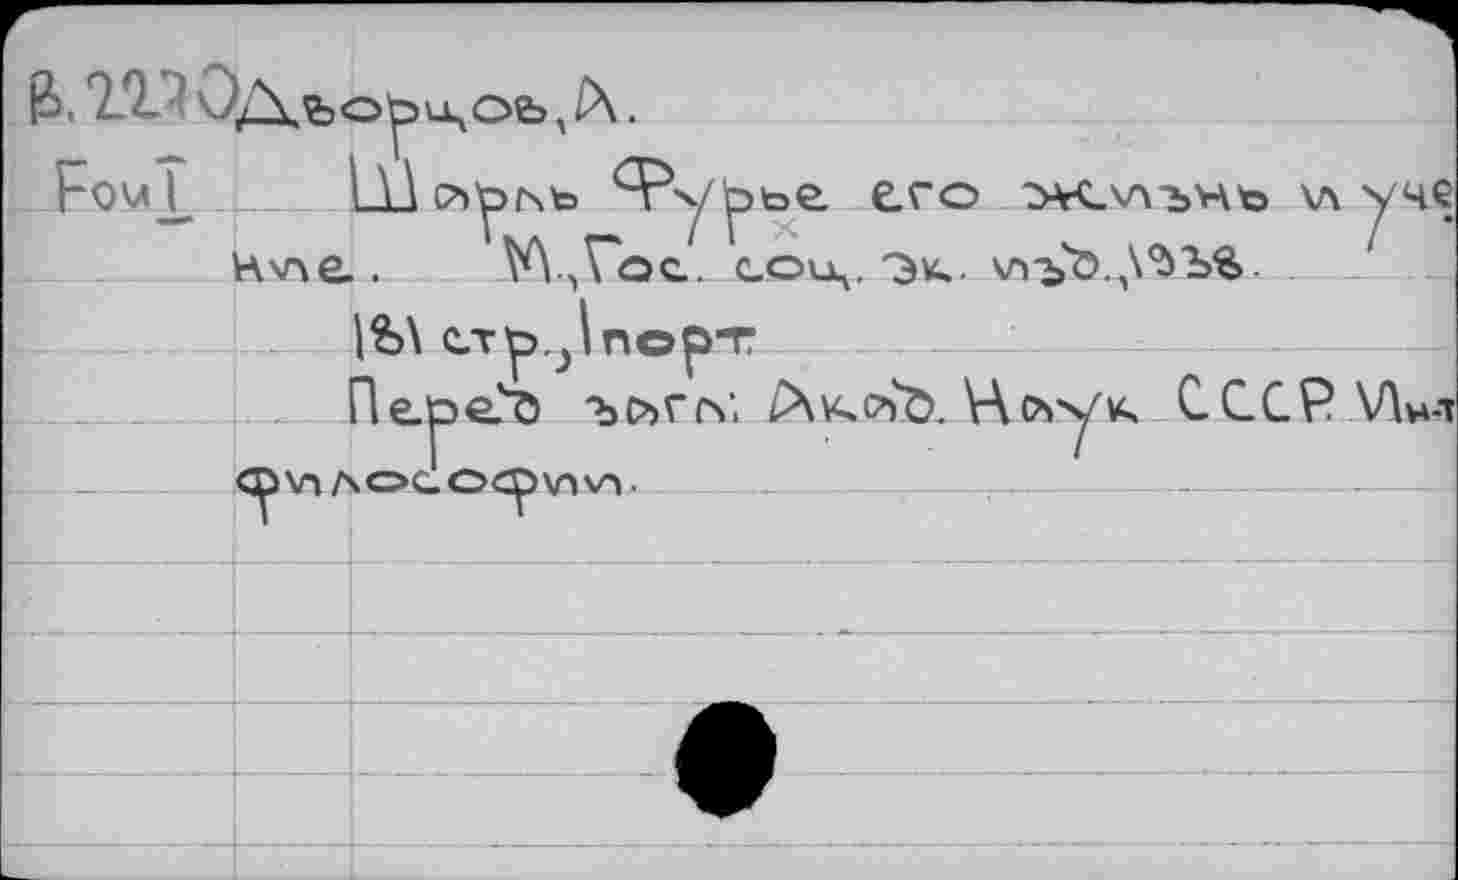 В.2230 Дворцов, А.
Foui Шарль Фурье его жизнь и уче
ние. М., Гос. соц. эк. изд., 1938.
181 стр., 1 порт.
Перед загл: Акад. Наук СССР. Ин-т
философии.